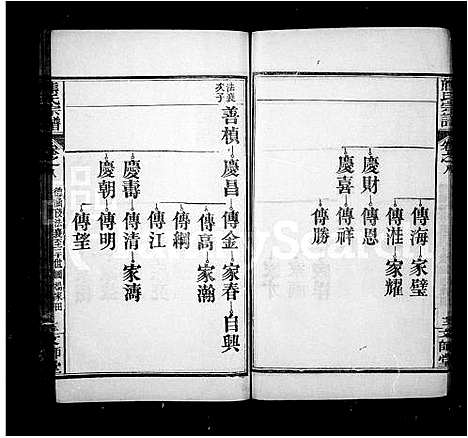 熊氏宗譜
卷之八
傳海 家璧
傳淮 家耀
慶財 傳恩
慶喜 傳祥
傳勝
法襄次子
善楨 慶昌 傳金 家春 自興
傳高 家瀚
傳綱
傳江
慶壽 傳清 家濤
慶朝 傳明
傳望
熊氏宗譜
卷之八